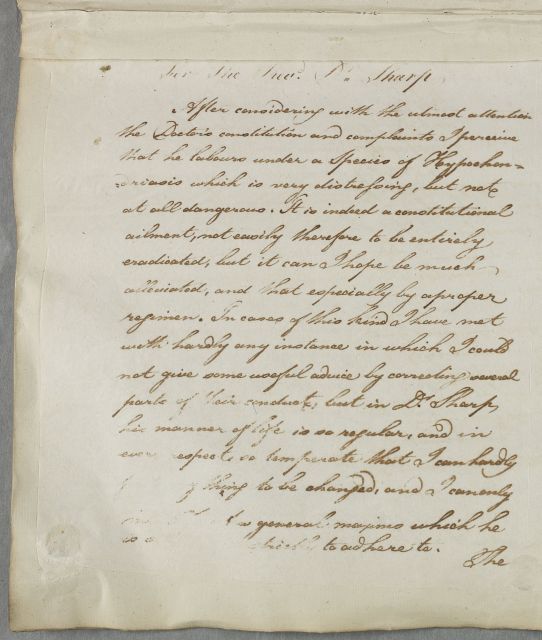 For The Revd. Dr. Sharp
After considering with the utmost attention
the Doctor's constitution and complaints I perceive
that he labours under a Species of Hypochon=
driasis which is very distressing, but not
at all dangerous. It is indeed a constitutional
ailment, not easily therefore to be entirely
eradicated, but it can I hope be much
alleviated, and that especially by a proper
regimen. In cases of this kind I have met
with hardly any instance in which I could
not give some useful advice by correcting several
parts of their conduct, but in Dr. Sharp,
his manner of life is so regular, and in
every respect, so temperate that I can hardly
thing to be changed, and I can only
general maxims which he
is to adhere to.
The